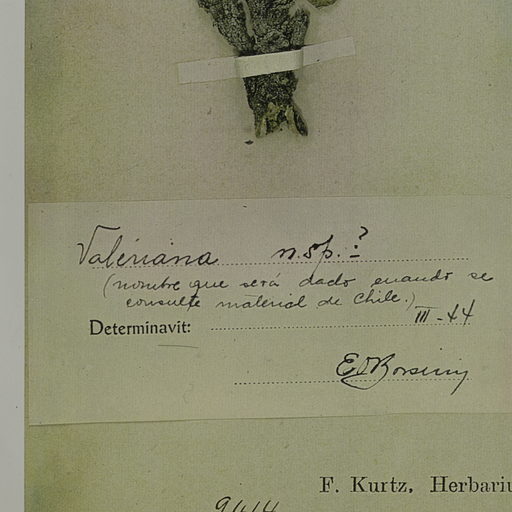 Valeriana n. sp. ?
(nombre que será dado cuando se
consulte material de Chile.)
Determinavit: III-44
E. Borsini
F. Kurtz, Herbariu